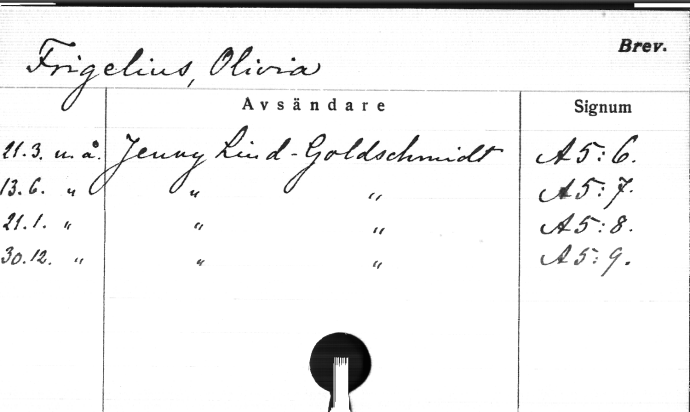 Brev.
Frigelius, Olivia
Avsändare Signum
21.3. u.å. Jenny Lind-Goldschmidt A5:6.
13.6. " " " A5:7.
21.1. " " " A5:8.
30.12. " " " A5:9.